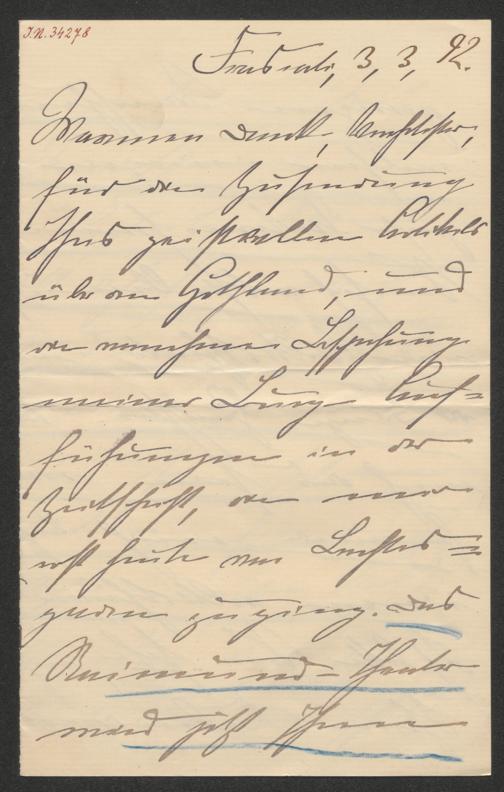 I.N. 34278
Frascati, 3, 3, 92.
Warmen Dank, Verehrtester,
für die Zusendung
Ihres geistvollen Artikels
über den Gothland, und
die Besprechung
meiner Burg- Auf=
führungen in der
Zeitschrift, die mir
erst heute von Berchtes=
gaden zuging. Das
Raimund-Theater
wird jetzt Ihnen